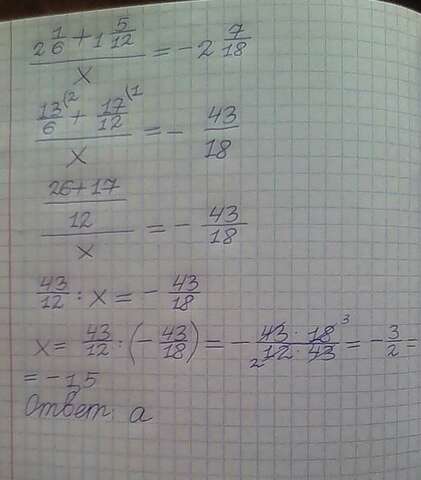 (2 1/6 + 1 5/12)/x = -2 7/18
(13/6⁽² + 17/12⁽¹)/x = - 43/18
((26+17)/12)/x = - 43/18
43/12 : x = - 43/18
x = 43/12 : (- 43/18) = - (43 · 18 ³)/(₂ 12 · 43) = - 3/2 =
= -1,5
Ответ: а